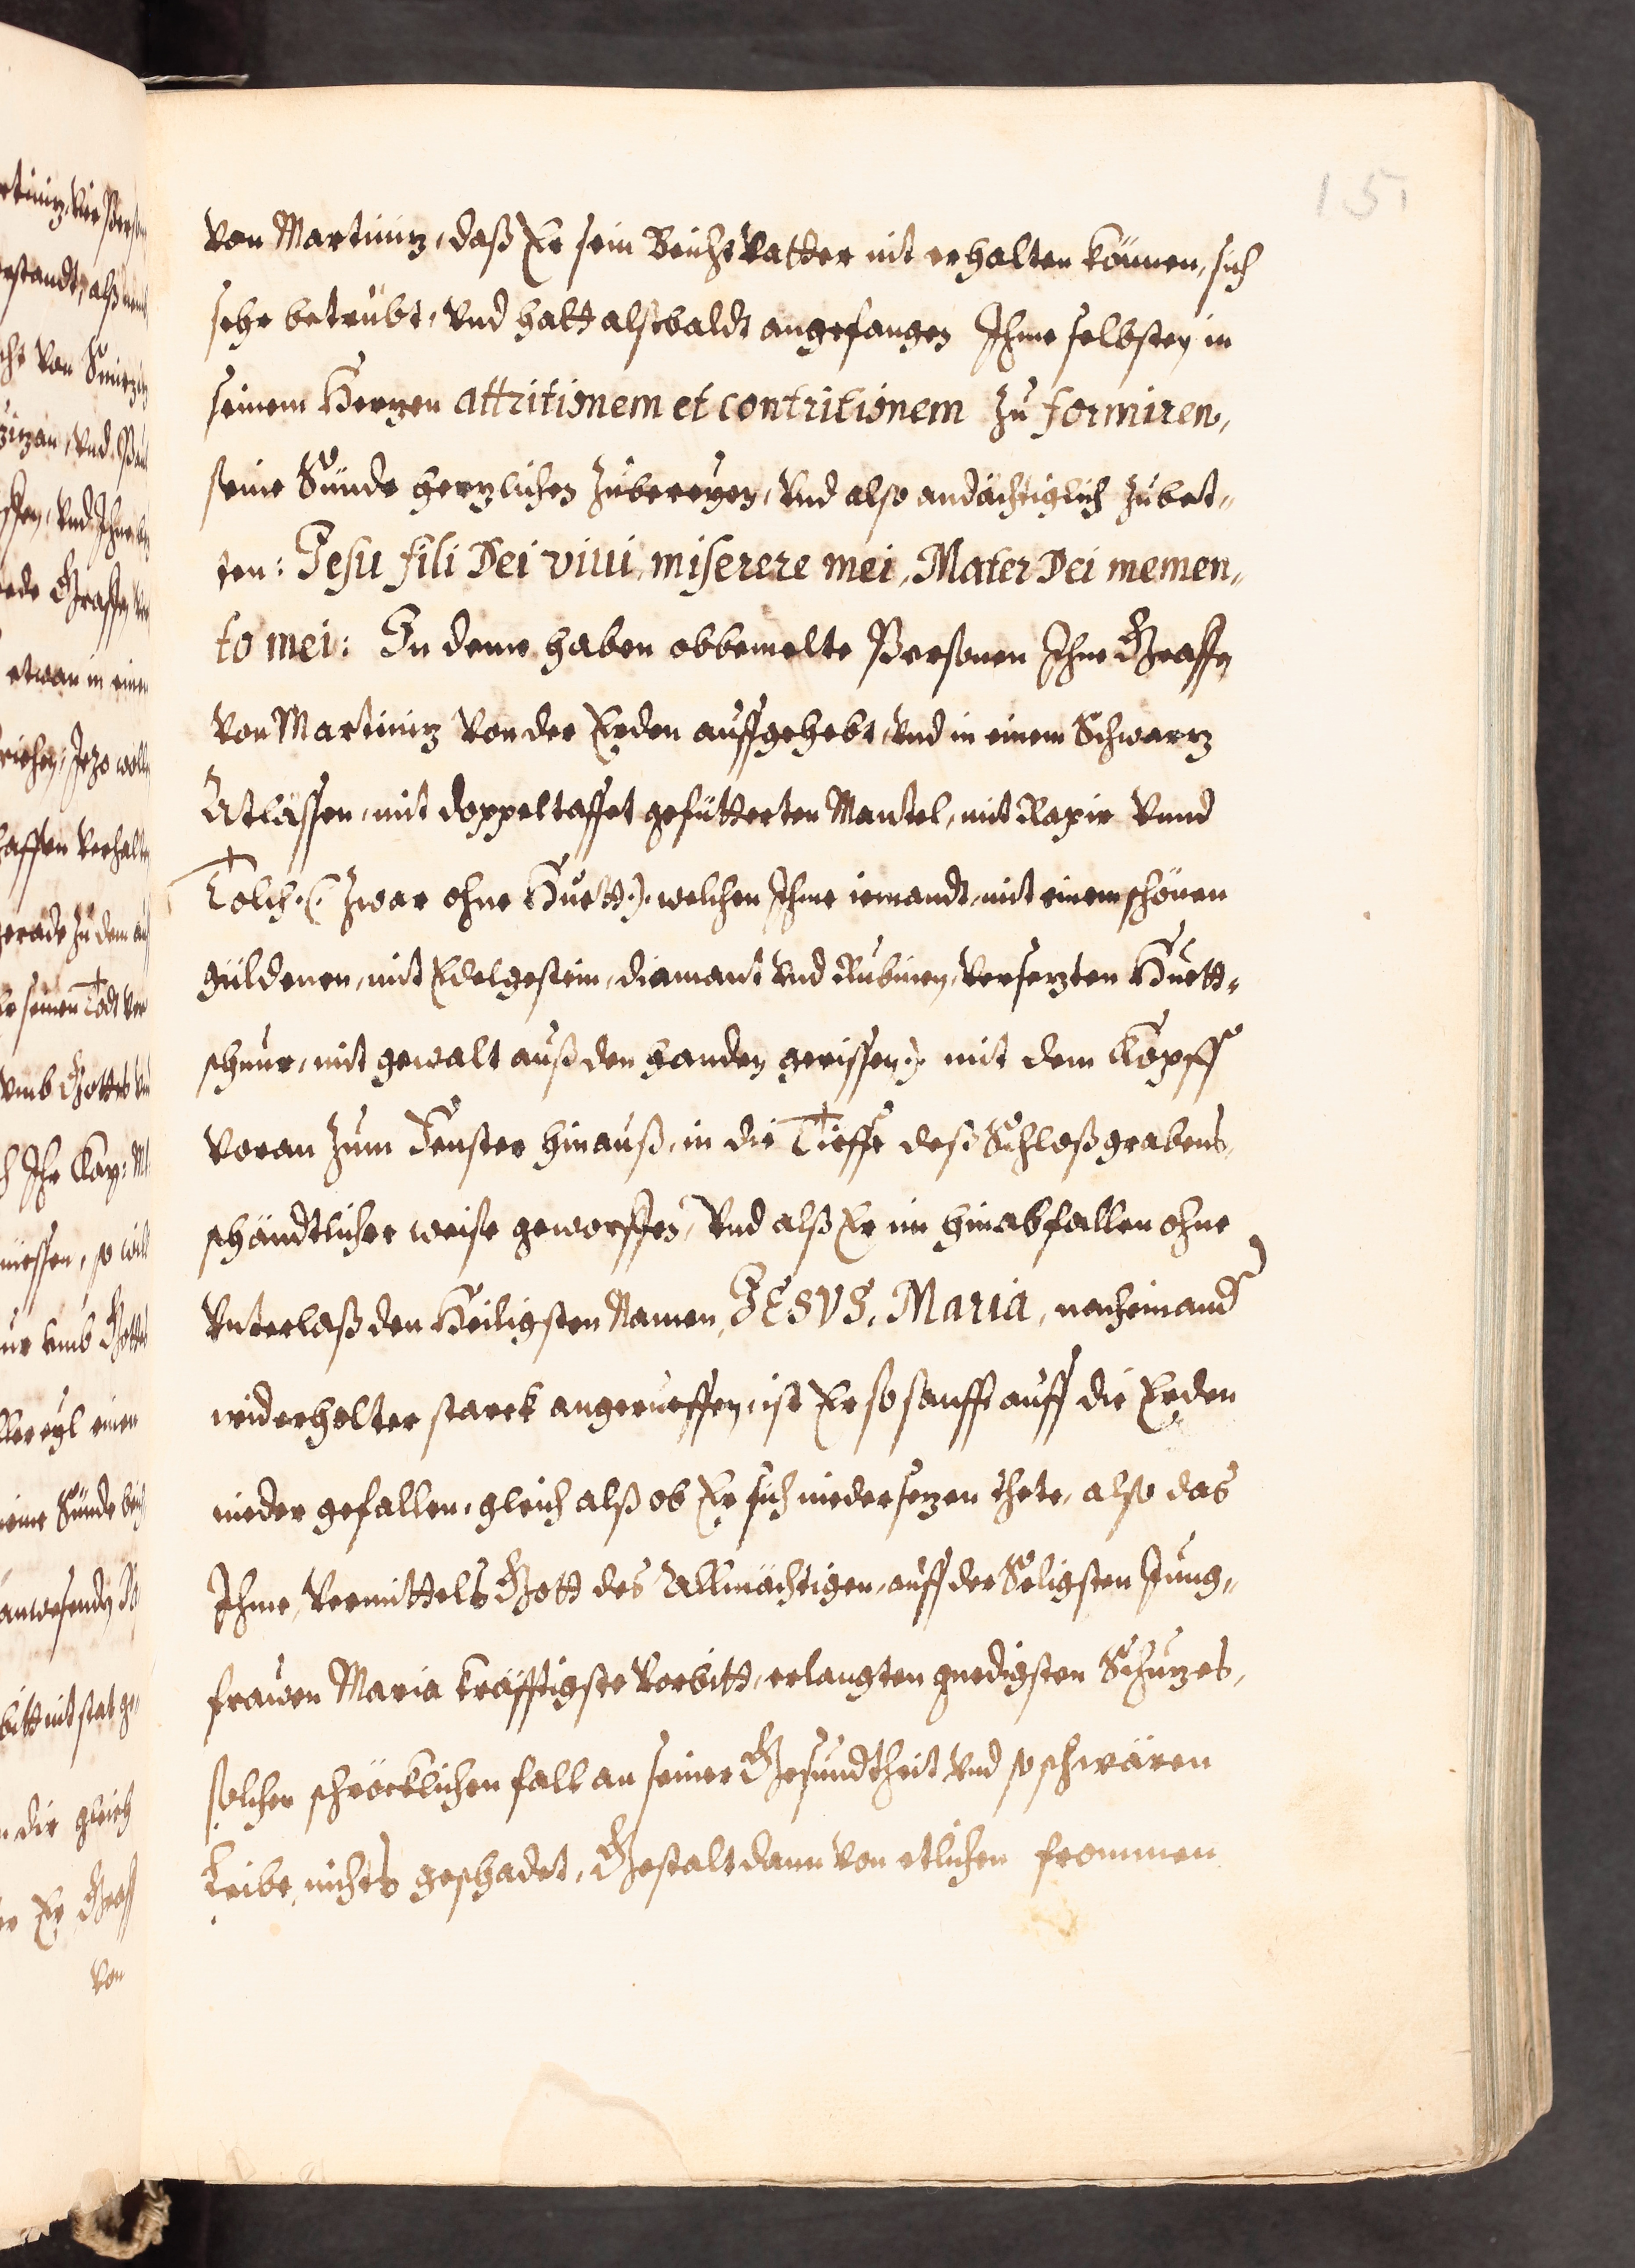 151
von Martinitz, daß Er sein Beichtvatter nit erhalten können, sich
sehr betrübt, vnd hatt alßbaldt angefangen Ihme selbsten in
seinem Hertzen attritionem et contritionem zu formiren,
seine Sünde hertzlichen zubereyen, vnd also andächtiglich zubet„
ten: Jesu fili Dei viui, miserere mei, Mater Dei memen„
to mei: In deme haben obbemelte Personen Ihne Graffen
von Martinitz von der Erden auffgehebt, vnd in einem Schwartz
Atlassen, mit doppeltaffet gefütterten Mantel, mit Rapir vnnd
Tolch.(. zwar ohne Huett.). welchen Ihme iemandt, mit einem schönen
güldenen, mit Edelgestein, diamant vnd Rubinen, versetzten Huett„
schnur, mit gewalt auß den handen gerissen). mit dem Kopff
voran zum Fenster hinauß, in die Tieffe deß Schloßgrabens,
schändtlicher weise geworffen, vnd alß Er im hinabfallen ohne
vnterlaß den Heiligsten Namen, JESVS, Maria, nacheinand
widerholter starck angerueffen, ist Er so sanfft auff die Erden
nieder gefallen, gleich alß ob Er sich niedersetzen thete, also das
Ihme, vermittels Gott des Allmächtigen, auff der Seligsten Jung„
frawen Maria kräfftigste vorbitt, erlangten gnedigsten Schutzes,
solcher schröcklichen fall an seiner Gesundtheit vnd so schwären
Leibe, nichts geschadet, Gestalt dann von etlichen frommen